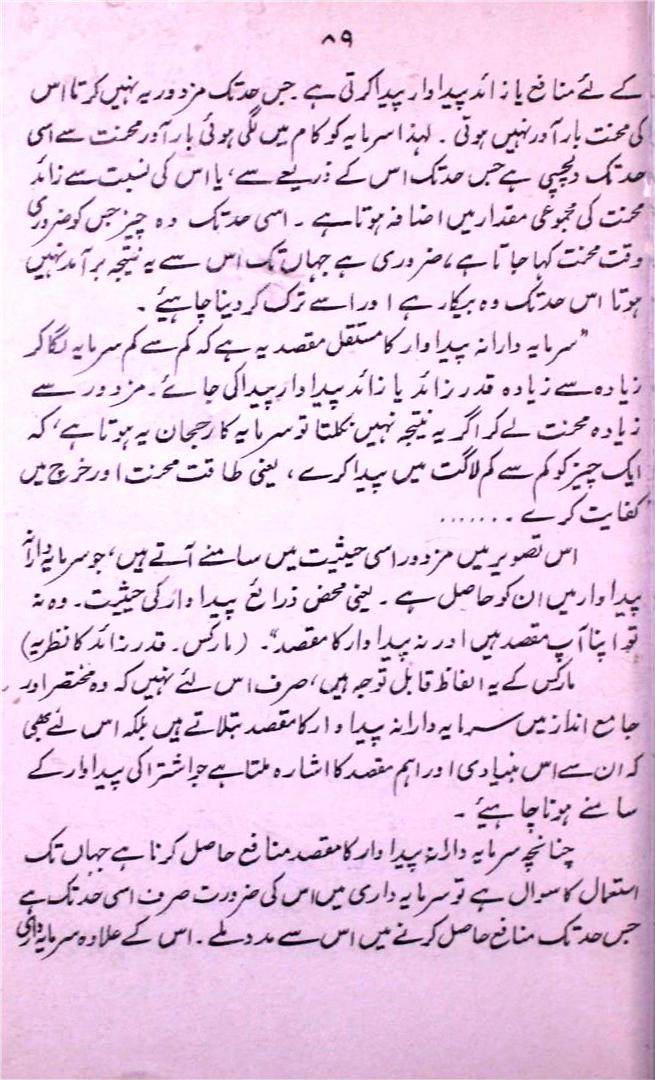 ۸۹
کے لئے منافع یا زائد پیداوار پیدا کرتی ہے۔ جس حد تک مزدور یہ نہیں کرتا اس
کی محنت بار آور نہیں ہوتی ۔ لہذا سرمایہ کو کام میں لگی ہوئی بار آور محنت سے اسی
حد تک دلچسپی ہے جس حد تک اس کے ذریعے سے، یا اس کی نسبت سے زائد
محنت کی مجموعی مقدار میں اضافہ ہوتا ہے ۔ اسی حد تک وہ چیز جس کو ضروری
وقت محنت کہا جاتا ہے، ضروری ہے جہاں تک اس سے یہ نتیجہ برآمد نہیں
ہوتا اس حد تک وہ بیکار ہے اور اسے ترک کر دینا چاہیئے ۔
”سرمایہ دارانہ پیداوار کا مستقل مقصد یہ ہے کہ کم سے کم سرمایہ لگا کر
زیادہ سے زیادہ قدر زائد یا زائد پیداوار پیدا کی جائے۔ مزدور سے
زیادہ محنت لے کر اگر یہ نتیجہ نہیں نکلتا تو سرمایہ کا رجحان یہ ہوتا ہے، کہ
ایک چیز کو کم سے کم لاگت میں پیدا کرے ، یعنی طاقت محنت اور خرچ میں
کفایت کرے ۔ .......
اس تصویر میں مزدور اسی حیثیت میں سامنے آتے ہیں، جو سرمایہ دارانہ
پیداوار میں ان کو حاصل ہے ۔ یعنی محض ذرائع پیداوار کی حیثیت۔ وہ نہ
تو اپنا آپ مقصد ہیں اور نہ پیداوار کا مقصد“۔ (مارکس۔ قدر زائد کا نظریہ)
مارکس کے یہ الفاظ قابل توجہ ہیں، صرف اس لئے نہیں کہ وہ مختصر اور
جامع انداز میں سرمایہ دارانہ پیداوار کا مقصد بتلاتے ہیں بلکہ اس لئے بھی
کہ ان سے اس بنیادی اور اہم مقصد کا اشارہ ملتا ہے جو اشتراکی پیداوار کے
سامنے ہونا چاہیئے ۔
چنانچہ سرمایہ دارانہ پیداوار کا مقصد منافع حاصل کرنا ہے جہاں تک
استعمال کا سوال ہے تو سرمایہ داری میں اس کی ضرورت صرف اسی حد تک ہے
جس حد تک منافع حاصل کرنے میں اس سے مدد ملے ۔ اس کے علاوہ سرمایہ داری